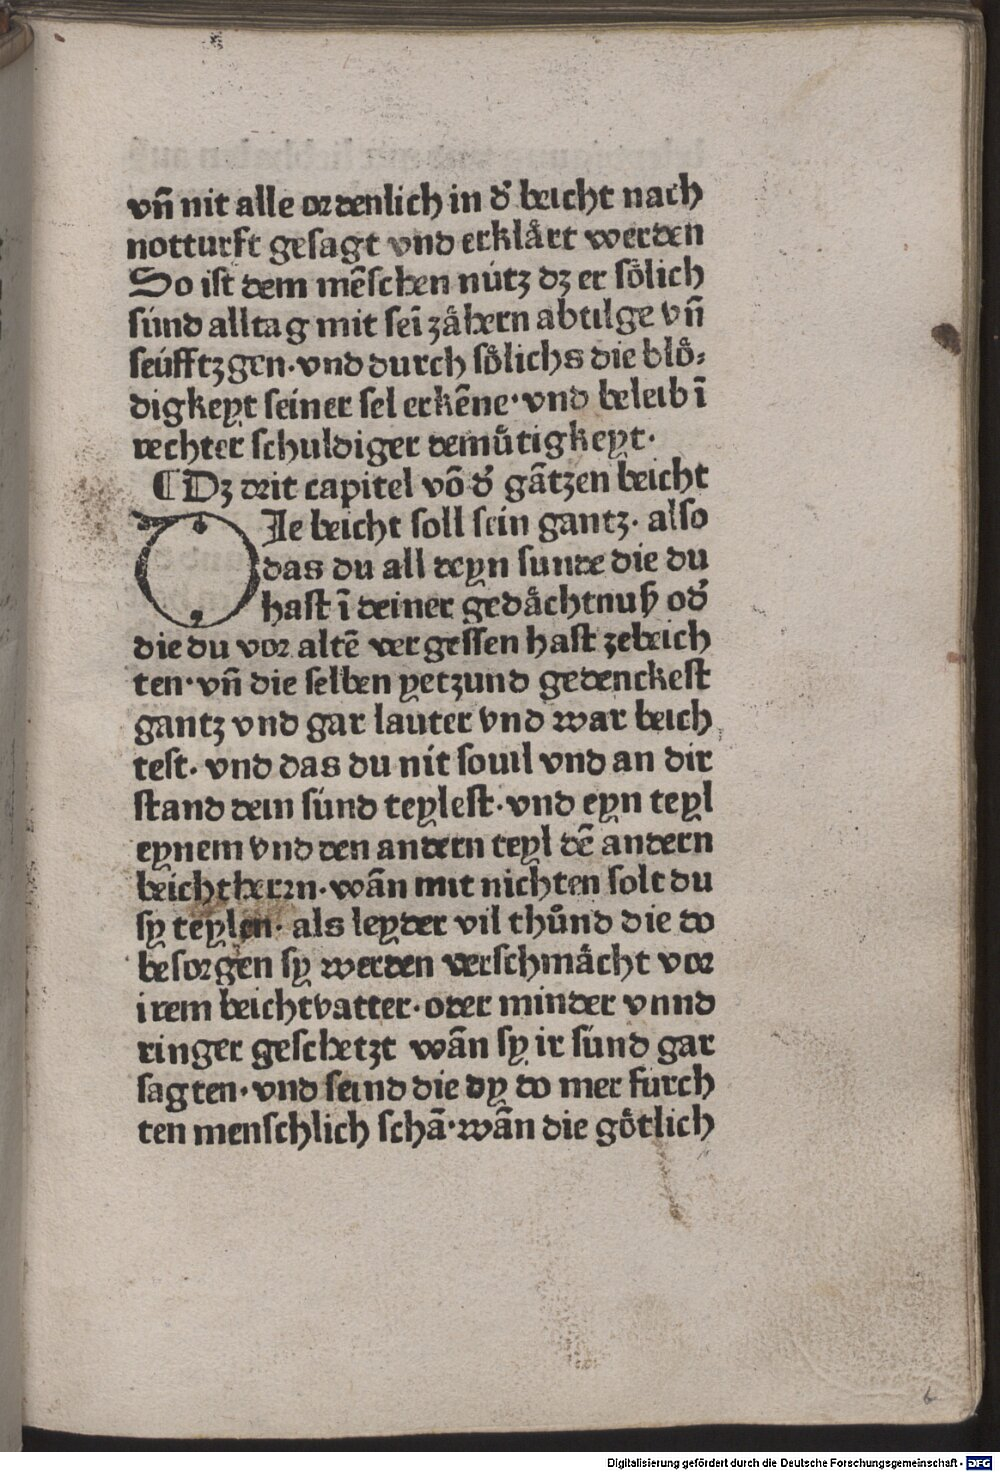 vñ nit alle ordenlich in d᷑ beicht nach
notturft gesagt vnd erklaͤrt werden
So ist dem mẽschen nútz dz er soͤlich
súnd alltag mit seĩ zaͤhern abtilge vñ
seúfftzgen· vnd durch soͤlichs die bloͤ⸗
digkeyt seiner sel erkẽne· vnd beleib ĩ
rechter schuldiger demuͤtigkeyt·
¶ Dz drit capitel võ d᷑ gãtzen beicht
DIe beicht soll sein gantz· also
das du all deyn sunde die du
hast ĩ deiner gedaͤchtnuß od᷑
die du vor altẽ vergessen hast zebeich
ten· vñ die selben yetzund gedenckest
gantz vnd gar lauter vnd war beich
test· vnd das du nit souil vnd an dir
stand dein súnd teylest· vnd eyn teyl
eynem vnd den andern teyl dẽ andern
beichtherrn· wãn mit nichten solt du
sy teylen· als leyder vil thuͦnd die do
besorgen sy werden verschmaͤcht vor
irem beichtvatter· oder minder vnnd
ringer geschetzt wãn sy ir súnd gar
sagten· vnd seind die dy do mer furch
ten menschlich schã· wãn die goͤtlich
6
Digitalisierung gefördert durch die Deutsche Forschungsgemeinschaft - DFG